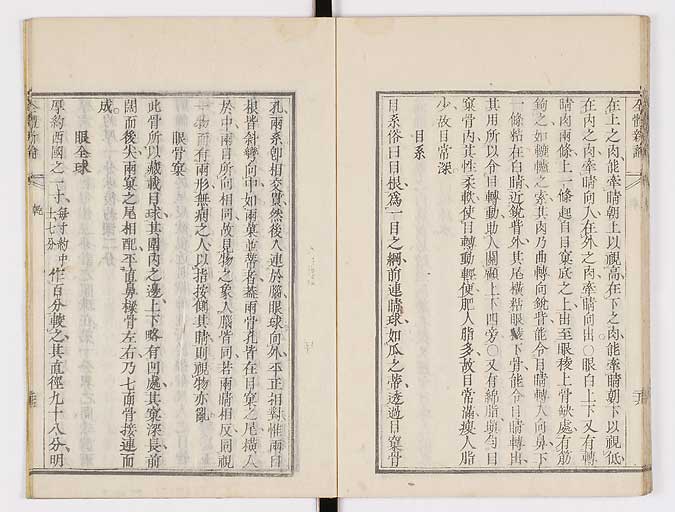 在上之肉能牽睛朝上以視高在下之肉能牽睛朝下以視低
在內之肉牽睛向人在外之肉牽睛向出○眼白上下又有轉
睛肉兩條上一條起自目窠底之上由至眼稜上骨缺處有筋
鉤之如轆轤之索其肉乃曲轉向銳眥能令目睛轉大向鼻下
一條粘在白睛近銳眥外其尾橫粘眼窠下骨能令目睛轉出
其用所以令目轉動助人關顧上下四旁○又有綿脂填勻目
窠骨內其性柔軟使目轉動輕便肥人脂多故目常滿瘦人脂
少故目常深
目系
目系俗曰目根爲一目之綱前連睛球如瓜之蒂透過目窠骨
孔兩系卽相交貫然後入連於腦眼球向外平正相對惟兩目
根皆斜彎向中如兩菓並蒂者蓋兩骨孔皆在目窠之尾橫入
於中兩目所向相同故見物之象人腦皆同若兩睛相反同視
一物而有兩形無病之人以指按側其睛則視物亦亂
眼骨窠
此骨所以藏載目球其圍內之邊上下略有凹處其窠深長前
闊而後尖兩窠之尾相配平直鼻樑骨左右乃七面骨接連而
成
眼全球
厚約西國之一寸每寸約中土七分作百分較之其直徑九十八分明
全體新論